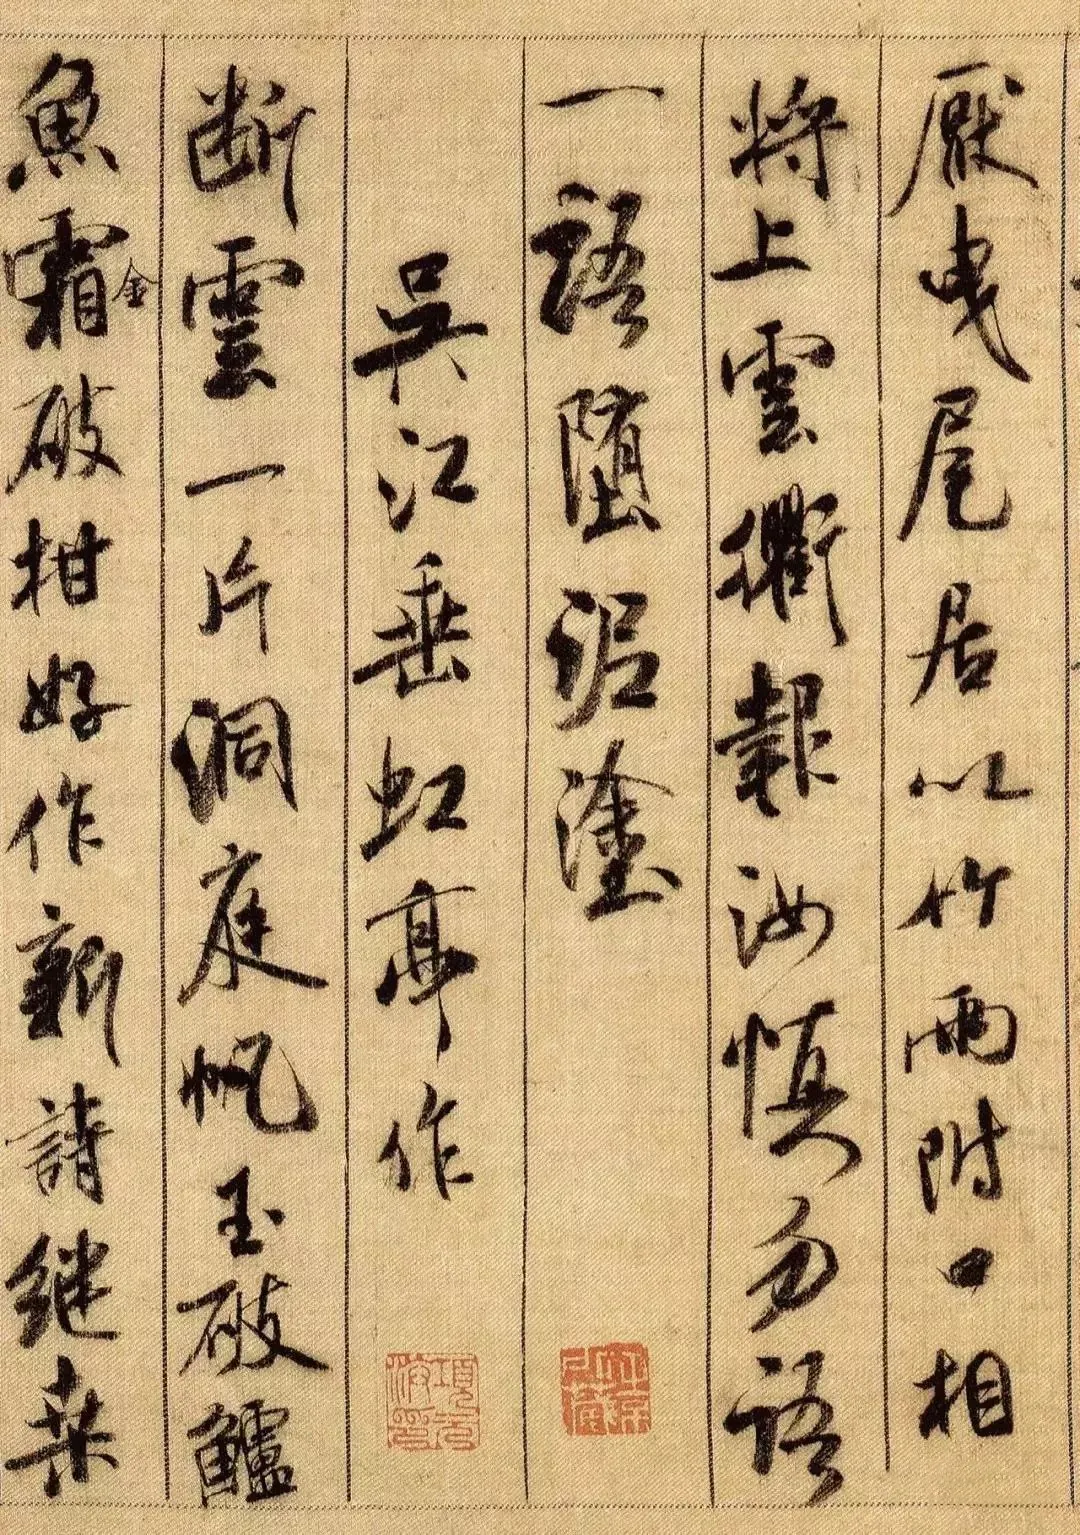 厭曳尾居以竹兩附口相
將上雲衢報汝慎勿語
一語墮泥塗
吳江垂虹亭作
斷雲一片洞庭帆玉破鱸
魚霜金破柑好作新詩繼桑
項元汴印